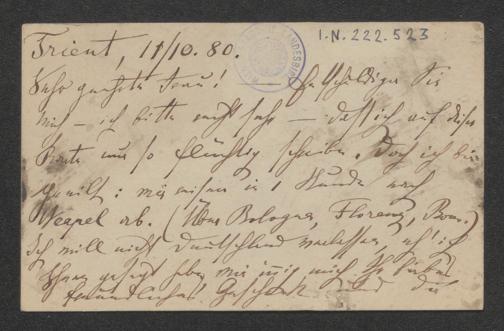 I.N. 222.523
Trient, 11/10. 80.
Sehr geehrte Frau! — Entschuldigen Sie
mich — ich bitte recht sehr — daß ich auf dieser
Karte nur so flüchtig schreibe. Doch ich bin
geeilt: wir reisen in 1 Stunde nach
Neapel ab. (Über Bologna, Florenz, Rom.)
Ich will nicht Deutschland verlassen, eh' ich
Ihnen gesagt habe, wie mich Ihr liebes
freundliches Geschenk und die